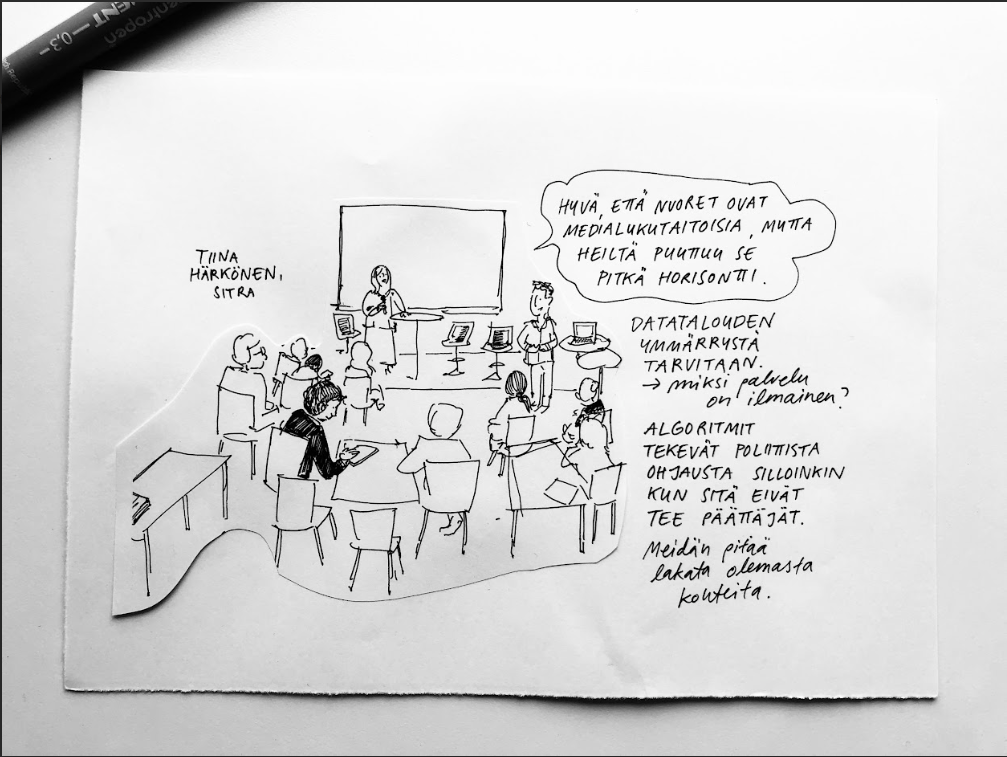 TIINA
HÄRKÖNEN,
SITRA
HYVÄ, ETTÄ NUORET OVAT
MEDIALUKUTAITOISIA, MUTTA
HEILTÄ PUUTTUU SE
PITKÄ HORISONTTI.
DATATALOUDEN
YMMÄRRYSTÄ
TARVITAAN.
→ miksi palvelu
on ilmainen?
ALGORITMIT
TEKEVÄT POLIITTISTA
OHJAUSTA SILLOINKIN
KUN SITÄ EIVÄT
TEE PÄÄTTÄJÄT.
Meidän pitää
lakata olemasta
kohteita.
0,3